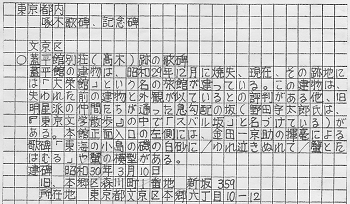 東京都内
啄木歌碑、記念碑
文京区
○蓋平館別荘(高木)跡の歌碑
蓋平館の建物は、昭和29年12月に焼失、現在、その跡地に
は「太栄館」という名の旅館が建っている。この建物は、
失われた前の建物と外観が似ているとの評判がある他、旧
明星の仲間たちが通った急勾配の坂(野田宇太郎氏が、
「東京文学散歩」の中で「スバル坂」と名づけている)が
ある。本館正面入口の左側には、金田一京助の揮毫による
歌碑「東海の小島の磯の白砂に/われ泣きぬれて/蟹とた
はむる」や蟹の模型がある。
建碑 昭和30年3月10日
旧、本郷区森川町1番地 新坂359
所在地 東京都文京区本郷六丁目10-12